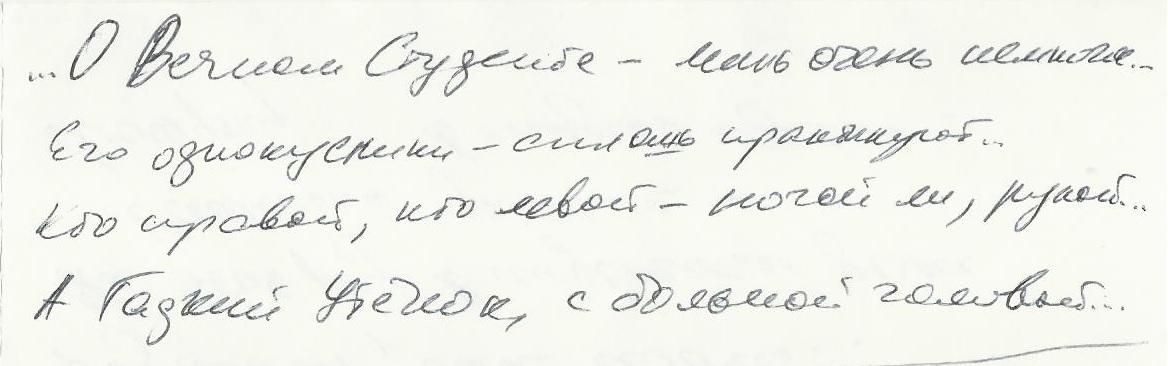 ...О Вечном Студенте – лишь очень немногие...
Его однокурсники – сплошь практикуют...
Кто правой, кто левой – ногой ли, рукой...
А Гадкий Утёнок, с больной головой...